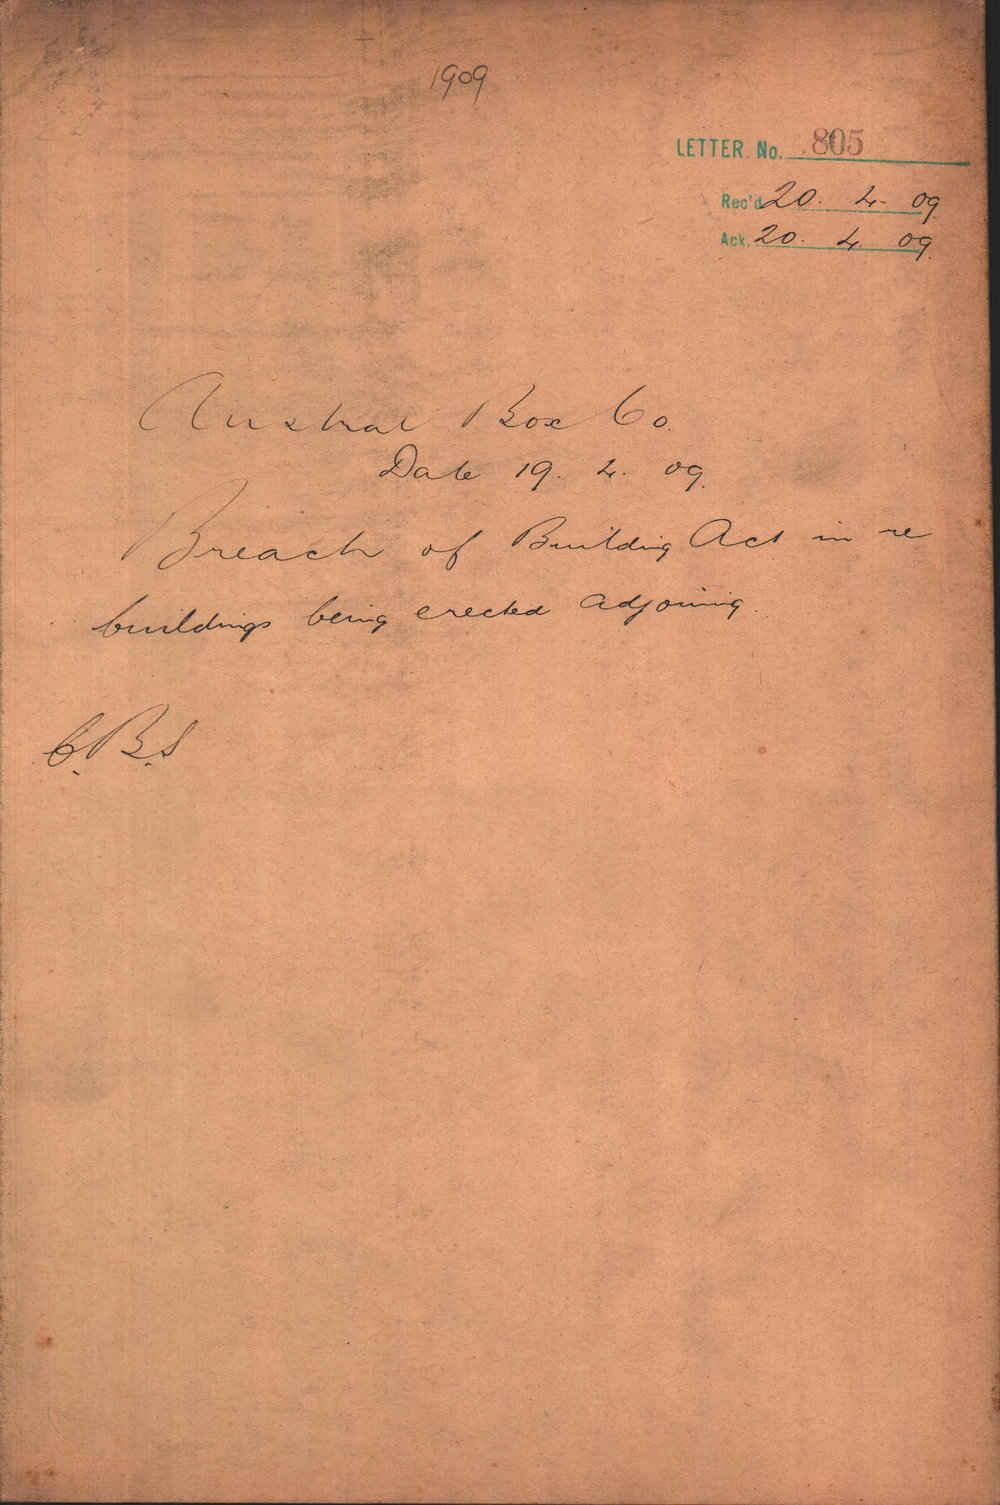 1909
LETTER No. 805
Rec'd 20. 4. 09.
Ack. 20. 4. 09.
Austral Box Co.
Date 19. 4. 09.
Breach of Building Act in re
buildings being erected adjoining.
C.B.S